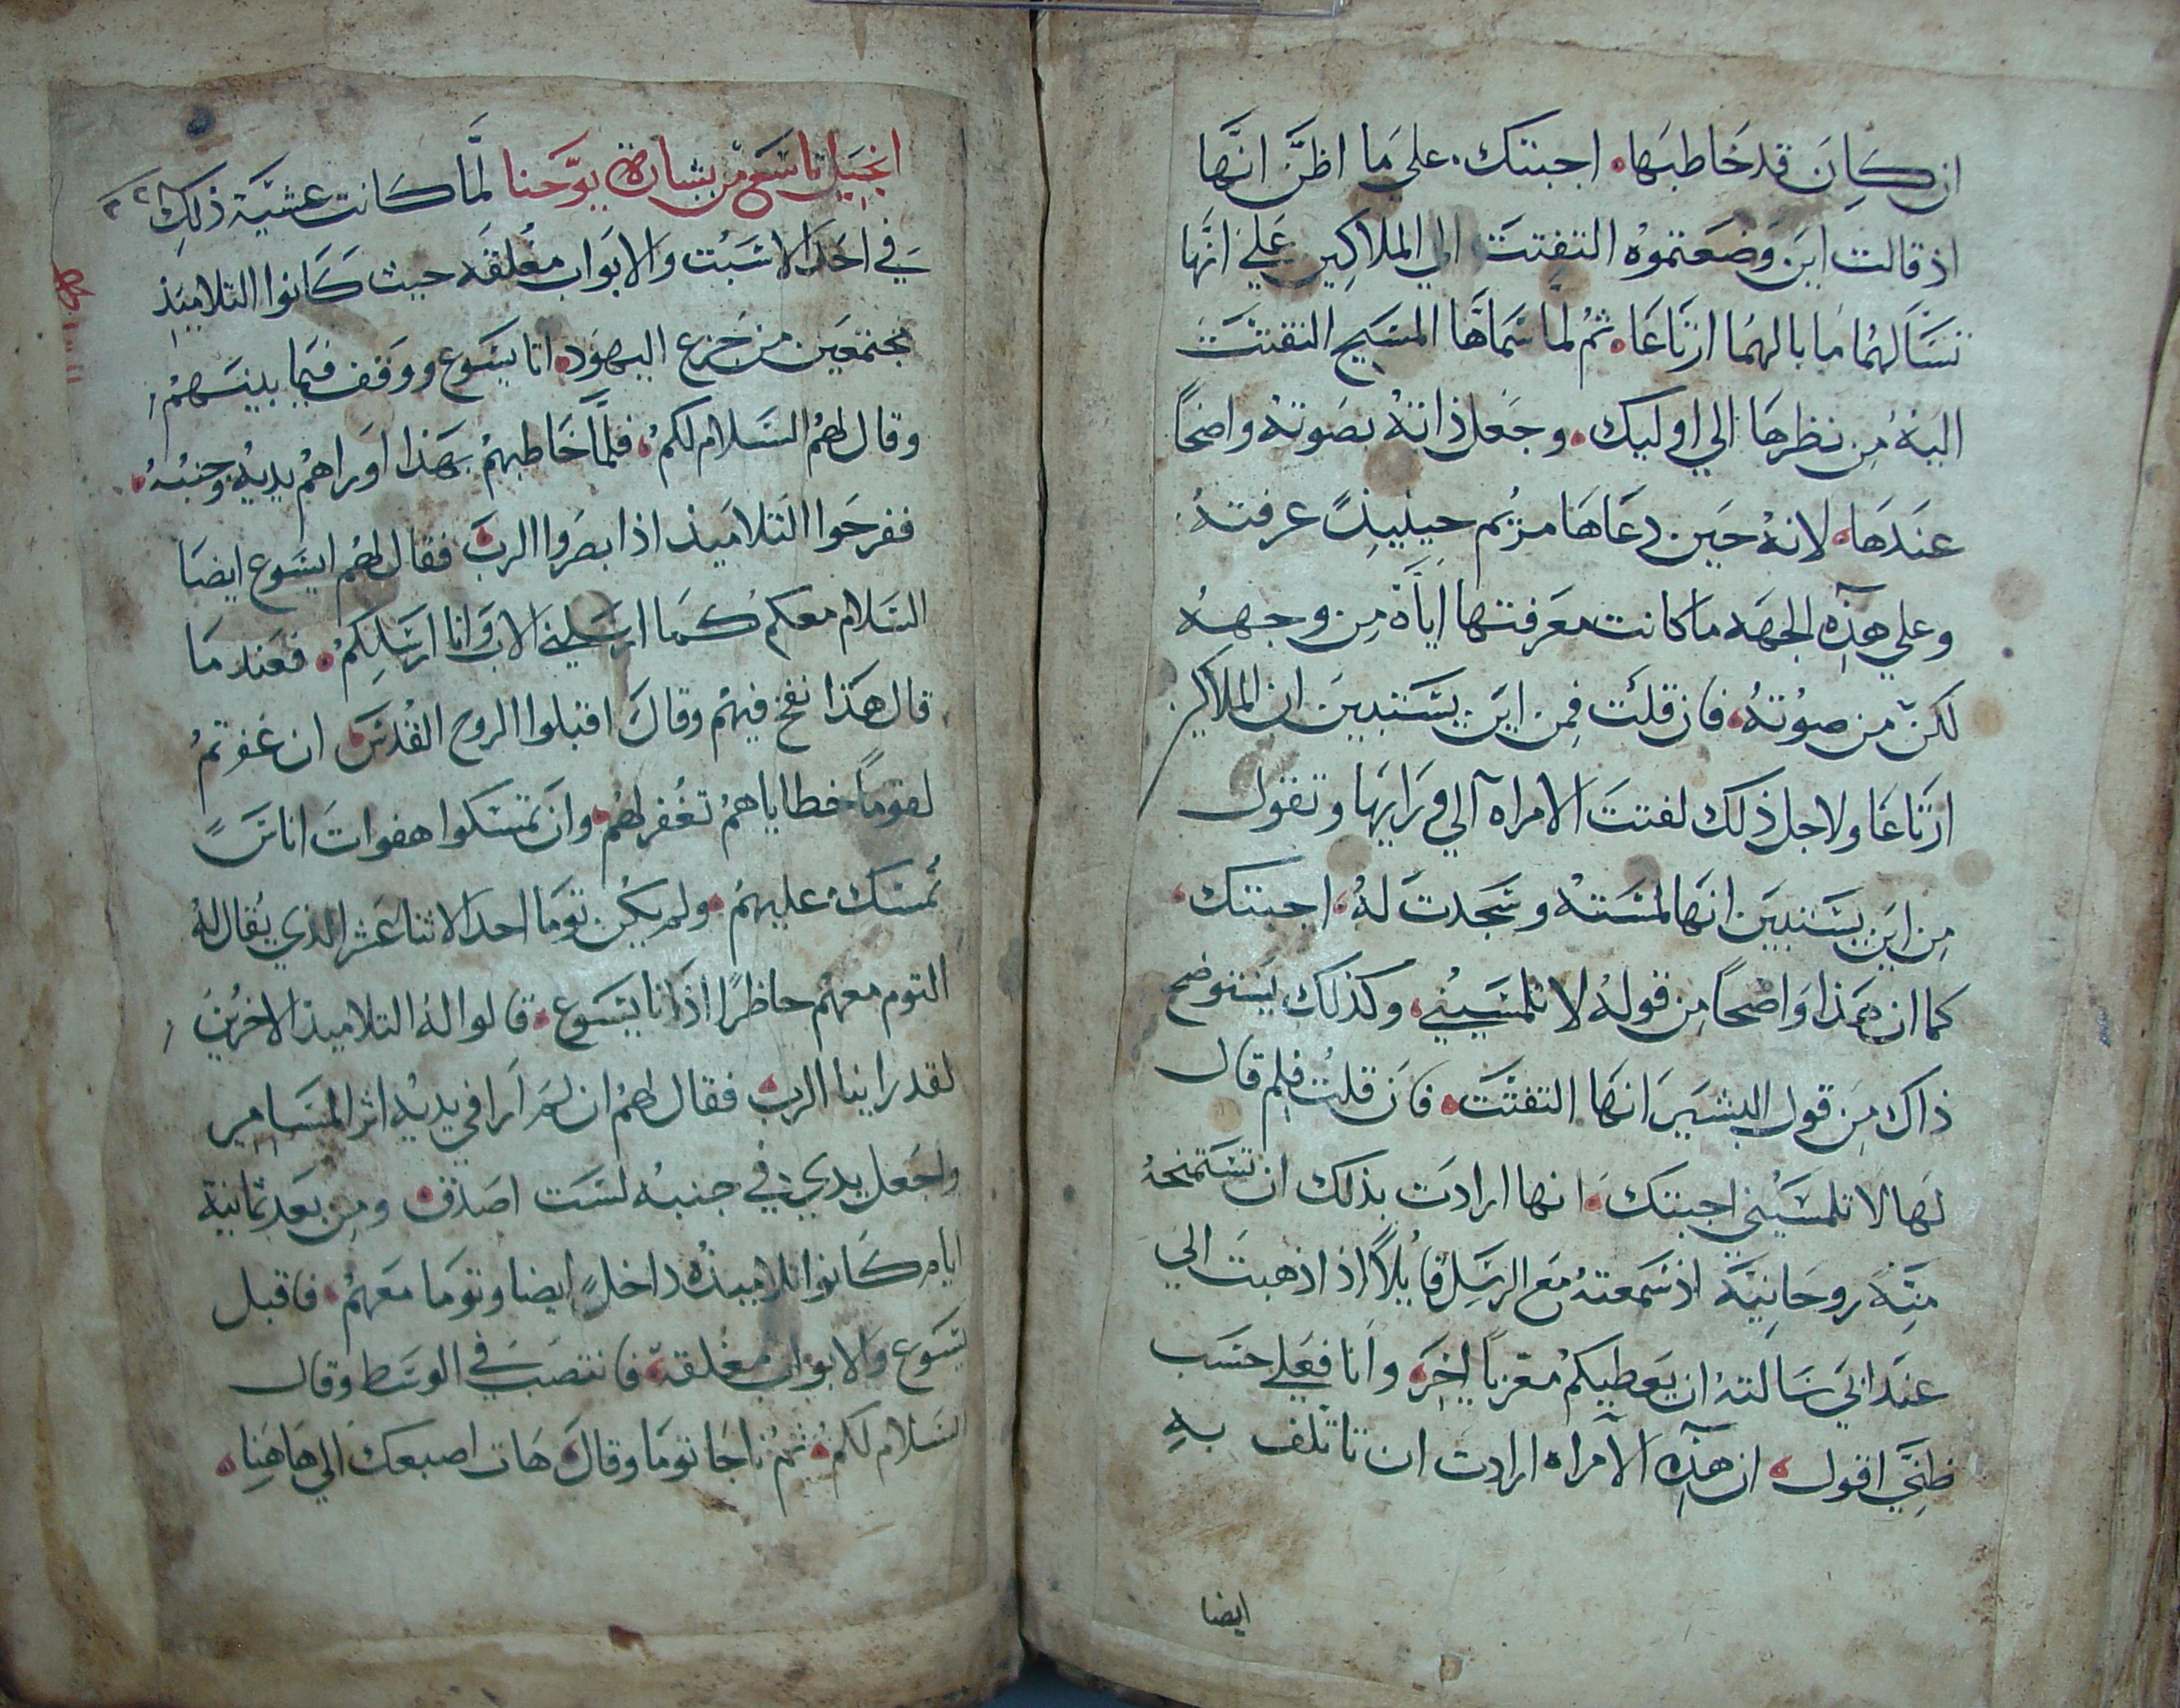 ان كان قد خاطبها اجبتك على ما اظن انها
اذ قالت اين وضعتموه التفتت الي الملاكين علي انها
تسالهما ما بالهما ارتاعا ثم لما سماها المسيح التفتت
اليه من نظرها الي اوليك وجعل ذاته بصوته واضحاً
عندها لانه حين دعاها مريم حينيذ عرفته
وعلي هذه الجهه ما كانت معرفتها اياه من وجهه
لكن من صوته فان قلت فمن اين يستبين ان الملاكين
ارتاعا ولاجل ذلك لفتت الامراه الي ورايها وتقول
من اين يستبين انها لمسته وسجدت له اجبتك
كما ان هذا واضحاً من قوله لا تلمسيني وكذلك يستوضح
ذاك من قول البشير انها التفتت فان قلت فلم قال
لها لا تلمسيني اجبتك انها ارادت بذلك ان تستمنحه
منة روحانية اذ سمعته مع الرسل قايلاً اذا ذهبت الي
عند ابي سالته ان يعطيكم معزياً اخر وانا فعلي حسب
ظني اقول ان هذه الامراه ارادت ان تاتلف به
ايضا
انجيل تاسع من بشارة يوحنا لما كانت عشية ذلك
في احد الاسبت والابواب مغلقه حيث كانوا التلاميذ
مجتمعين من جزع اليهود اتا يسوع ووقف فيما بينهم
وقال لهم السلام لكم فلما خاطبهم بهذا اوراهم يديه وجنبه
ففرحوا التلاميذ اذا بصروا الرب فقال لهم ايسوع ايضا
السلام معكم كما ارسلني الاب وانا ارسلكم فعند ما
قال هذا نفخ فيهم وقال اقبلوا الروح القدس ان غفرتم
لقوماً خطاياهم تغفر لهم وان تمسكوا هفوات اناسً
تمسك عليهم ولم يكن توما احد الاثنا عشر الذي يقال له
التوم معهم حاظراً اذ اتا يسوع قالوا له التلاميذ الاخرين
لقد راينا الرب فقال لهم ان لم ارا في يديه اثر المسامير
واجعل يدي في جنبه لست اصدق ومن بعد ثمانية
ايام كانوا تلاميذه داخل ايضا وتوما معهم فاقبل
يسوع والابواب مغلقة فانتصب في الوسط وقال
السلام لكم ثم ناجا توما وقال هات اصبعك الي هاهنا